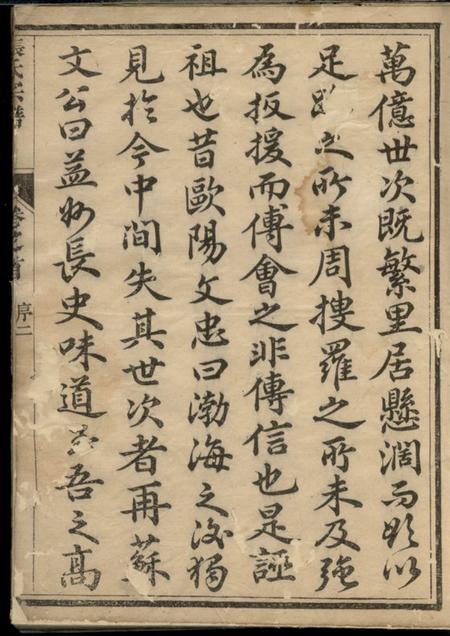 萬億世次既繁里居懸濶而欲以
足之所未周搜羅之所未及強
為扳援而傅會之非傳信也是誣
祖也昔歐陽文忠曰渤海之後獨
見於今中間失其世次者再蘇
文公曰益州長史味道吾之高
氏宗譜
卷之首
序二